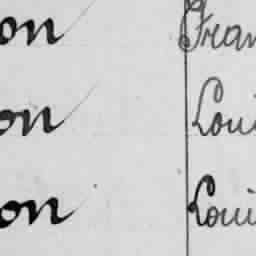 on Fran
on Loui
on Loui